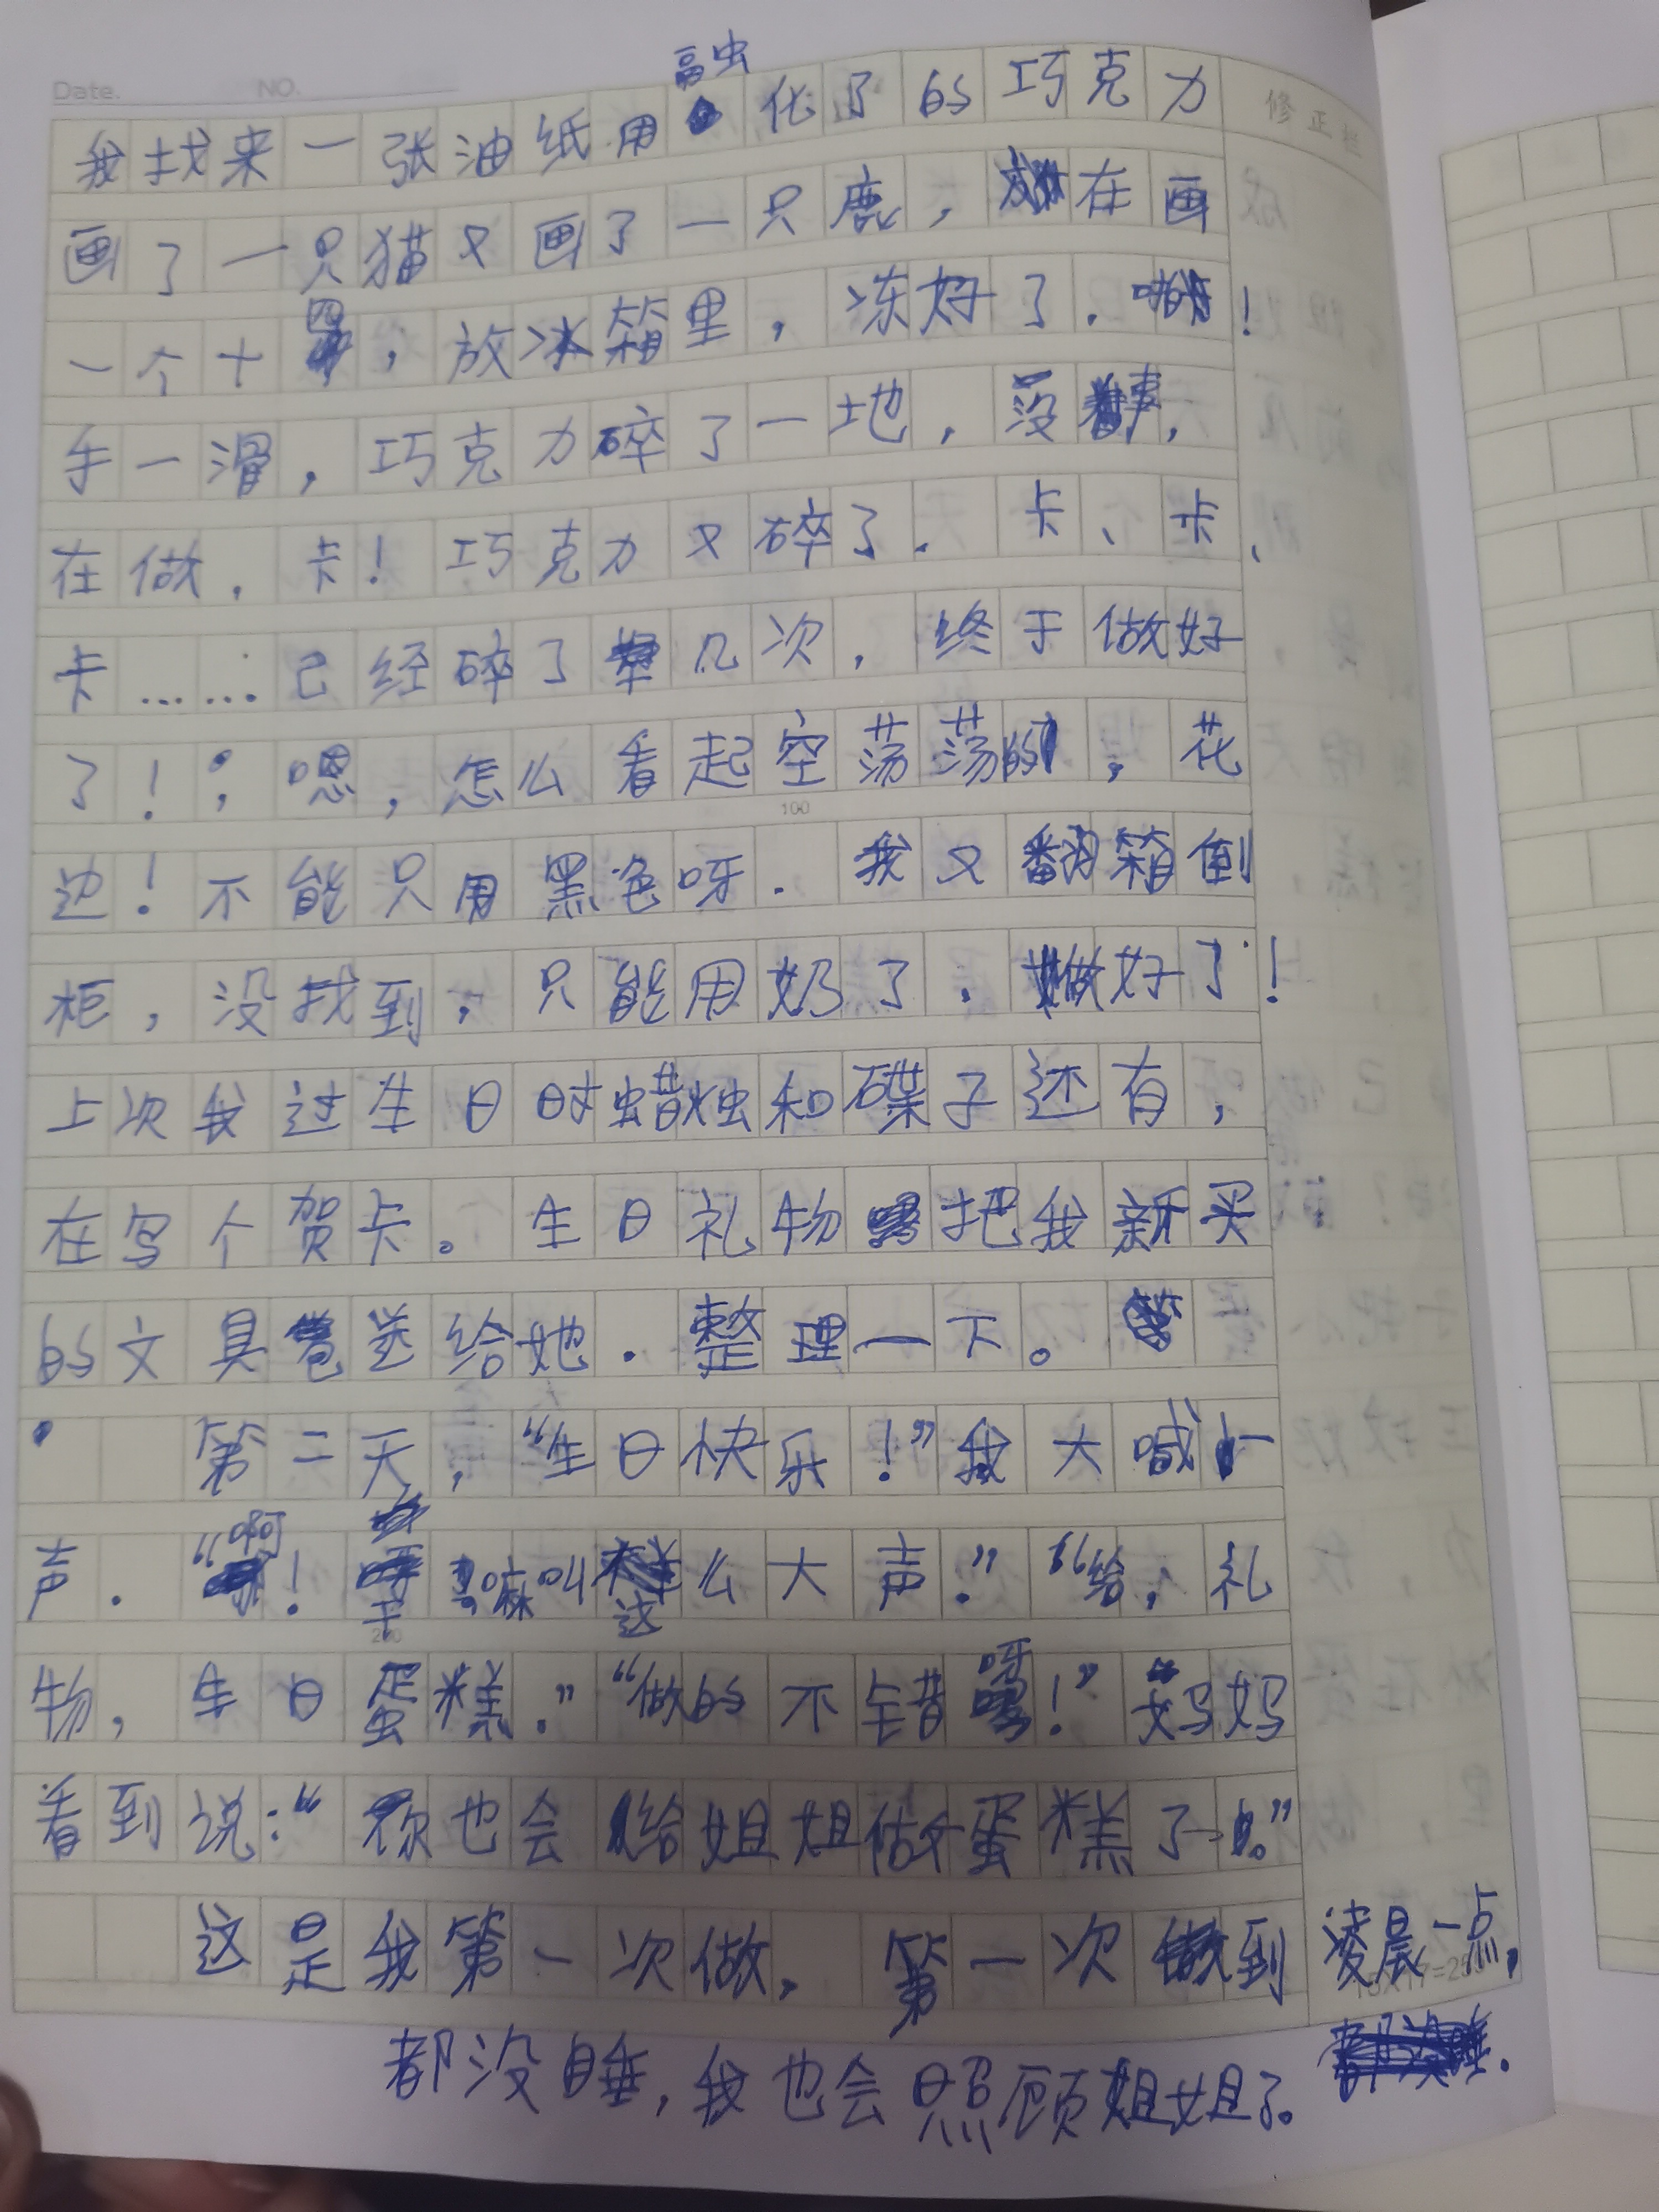 Date. NO.
融
我找来一张油纸用化了的巧克力
修正栏
画了一只猫又画了一只鹿，在画
一个十，放冰箱里，冻好了．啪！
手一滑，巧克力碎了一地，没事，
在做．卡！巧克力又碎了．卡、卡、
卡……已经碎了几次，终于做好
了！；嗯，怎么看起空荡荡的，花
边！不能只用黑色呀．我又翻箱倒
柜，没找到，只能用奶了．做好了！
100
上次我过生日时蜡烛和碟子还有，
在写个贺卡。生日礼物把我新买
的文具送给她．整理一下。
第二天，“生日快乐！”我大喊一
声．“啊！干嘛叫这么大声．”“给，礼
200
物，生日蛋糕．”“做的不错呀！”妈妈
看到说：“你也会给姐姐做蛋糕了。”
这是我第一次做，第一次做到凌晨一点，
都没睡，我也会照顾姐姐了。